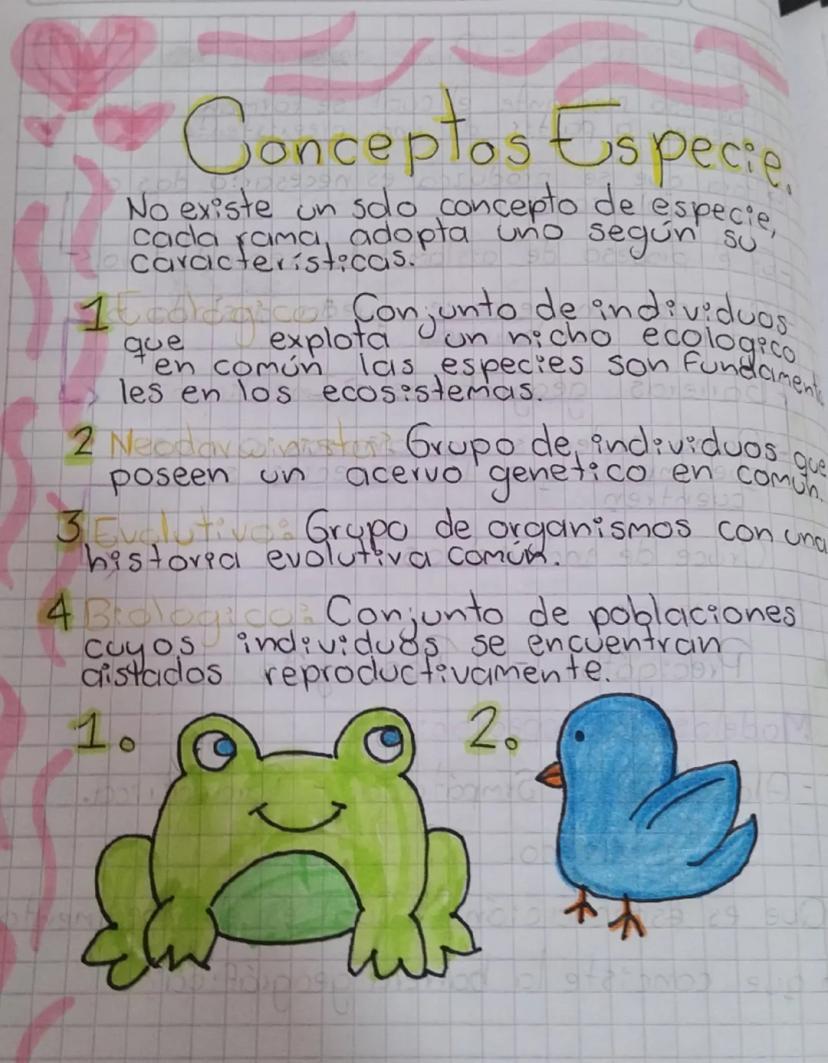 Conceptos Especie.
No existe un solo concepto de especie,
cada rama adopta uno según su
características.
1 Ecológico: Conjunto de individuos
que explota un nicho ecologico
en común las especies son fundament
les en los ecosistemas.
2 Neodarwinista: Grupo de individuos que
poseen un acervo genetico en común.
3 Evolutivo: Grupo de organismos con una
historia evolutiva común.
4 Biologico: Conjunto de poblaciones
cuyos individuos se encuentran
aistados reproductivamente.
1.
2.